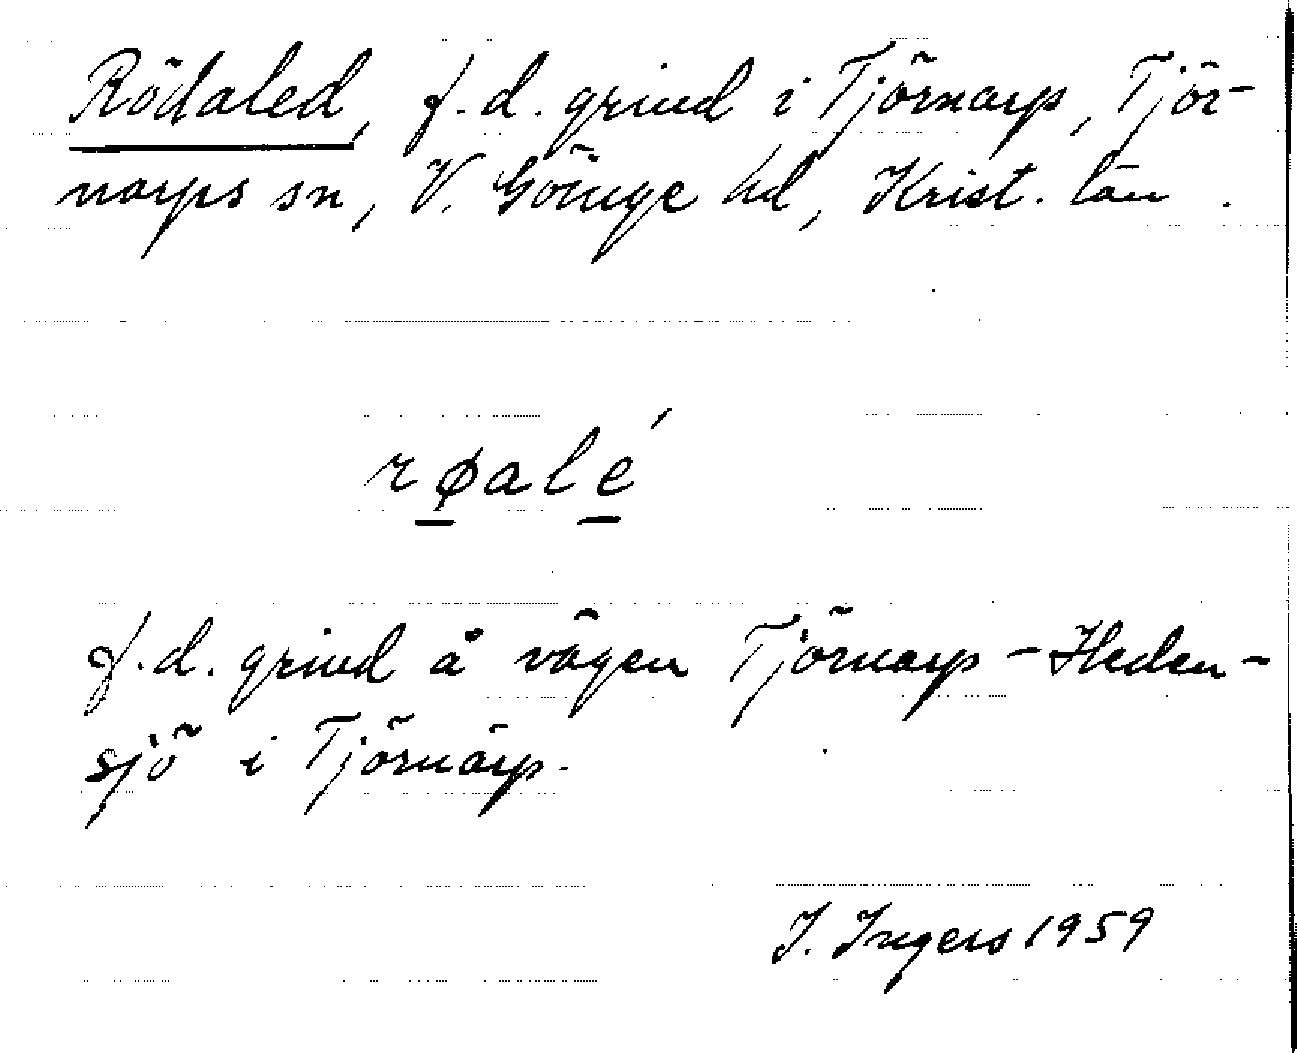 Rödaled, f.d. grind i Tjörnarp, Tjör-
narps sn, V. Göinge hd, Krist. län.
røalé
f.d. grind å vägen Tjörnarp - Heden-
sjö i Tjörnarp.
I. Ingers 1959